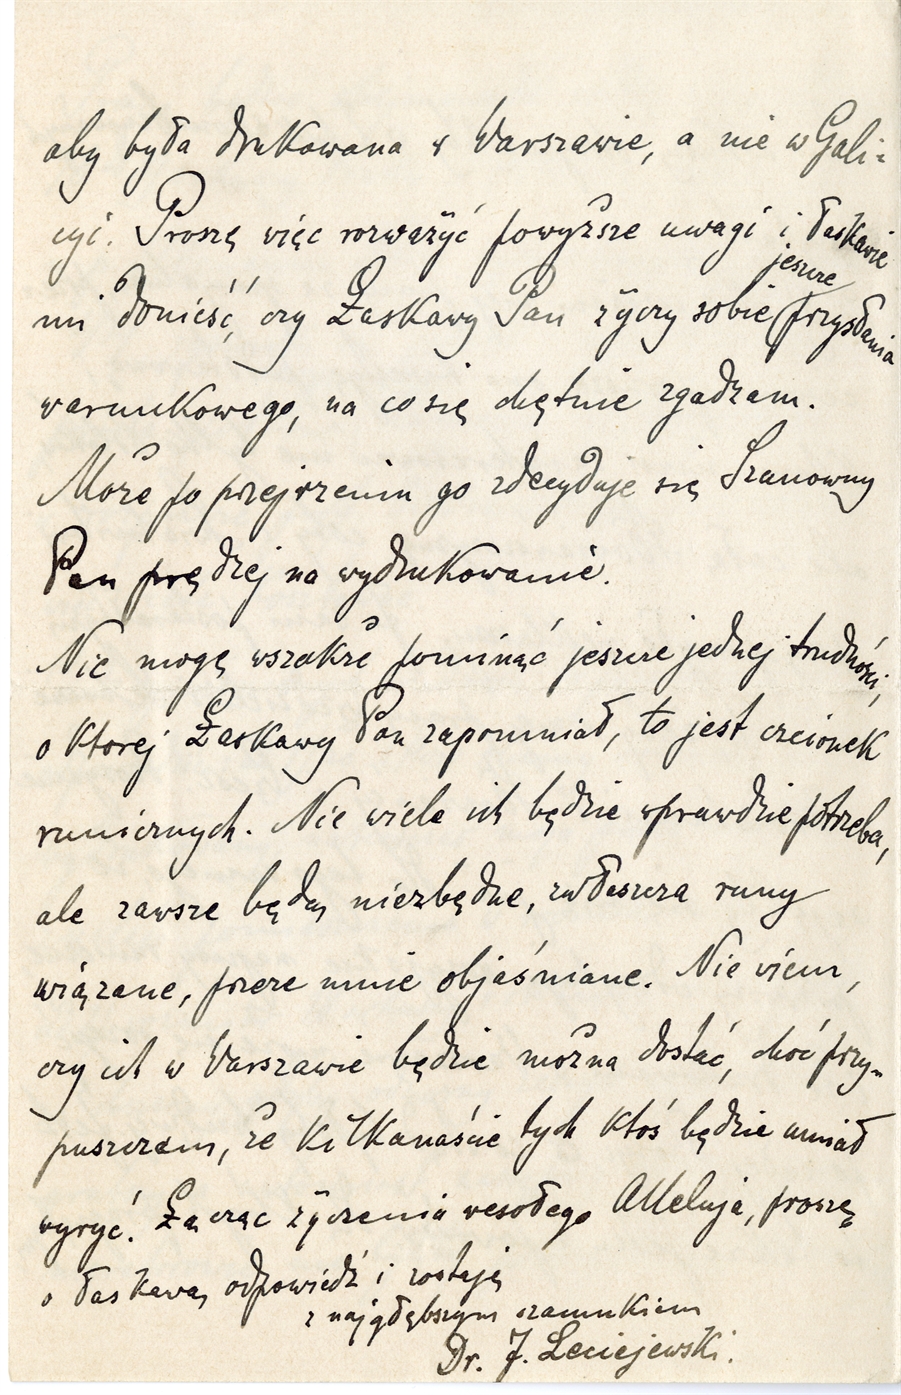 aby była drukowana w Warszawie, a nie w Gali-
cyi. Proszę więc rozważyć powyższe uwagi i łaskawie
jeszcze
mi donieść, czy Łaskawy Pan życzy sobie przysłania
warunkowego, na co się chętnie zgadzam.
Może po przejrzeniu go zdecyduje się Szanowny
Pan prędzej na wydrukowanie.
Nie mogę wszakże pominąć jeszcze jednej trudności,
o ktorej Łaskawy Pan zapomniał, to jest czcionek
runicznych. Nie wiele ich będzie wprawdzie potrzeba,
ale zawsze będą niezbędne, zwłaszcza runy
wiązane, przeze mnie objaśniane. Nie wiem,
czy ich w Warszawie będzie można dostać, choć przy-
puszczam, że kilkanaście tych ktoś będzie umiał
wyryć. Łącząc życzenia wesołego Alleluja, proszę
o łaskawą odpowiedź i zostaję
z najgłębszym szacunkiem
Dr. J. Leciejewski.